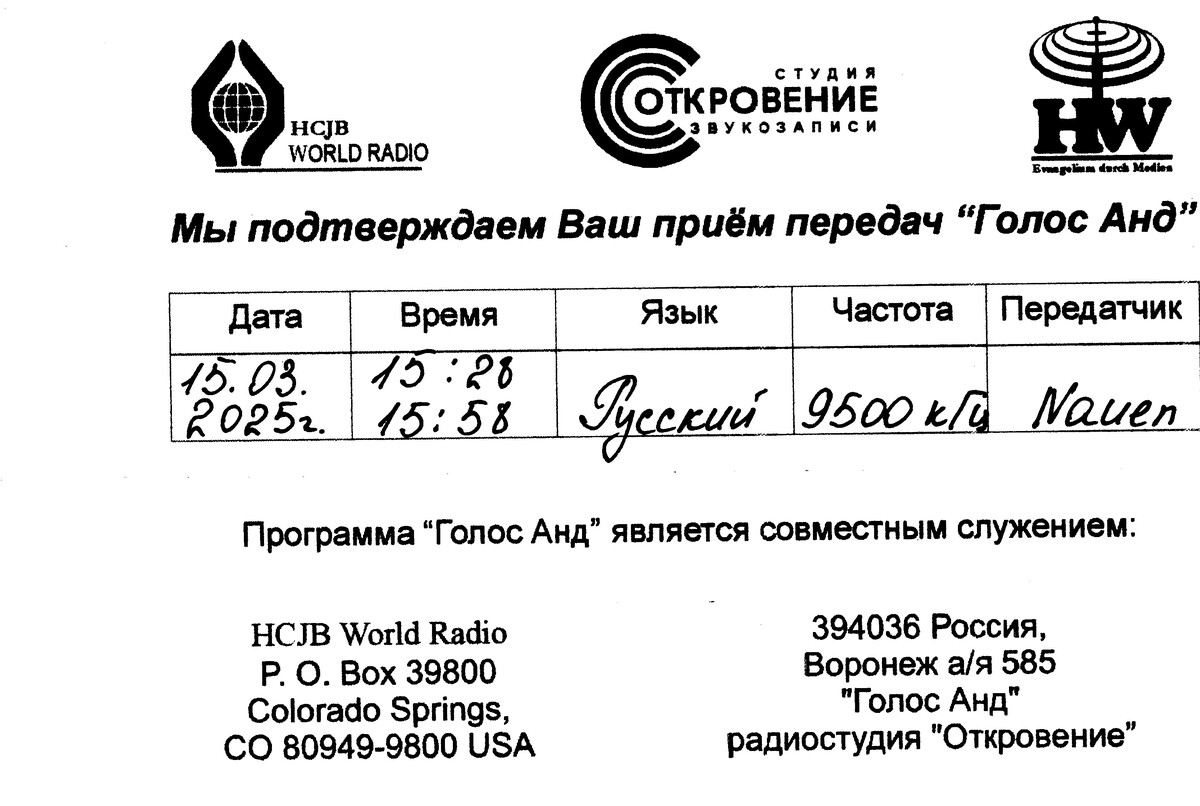 HCJB
WORLD RADIO
СТУДИЯ
ОТКРОВЕНИЕ
ЗВУКОЗАПИСИ
HW
Evangelium durch Medien
Мы подтверждаем Ваш приём передач “Голос Анд”
Дата Время Язык Частота Передатчик
15.03. 2025г. 15:28 15:58 Русский 9500 кГц Nauen
Программа “Голос Анд” является совместным служением:
HCJB World Radio
P. O. Box 39800
Colorado Springs,
CO 80949-9800 USA
394036 Россия,
Воронеж а/я 585
"Голос Анд"
радиостудия "Откровение”